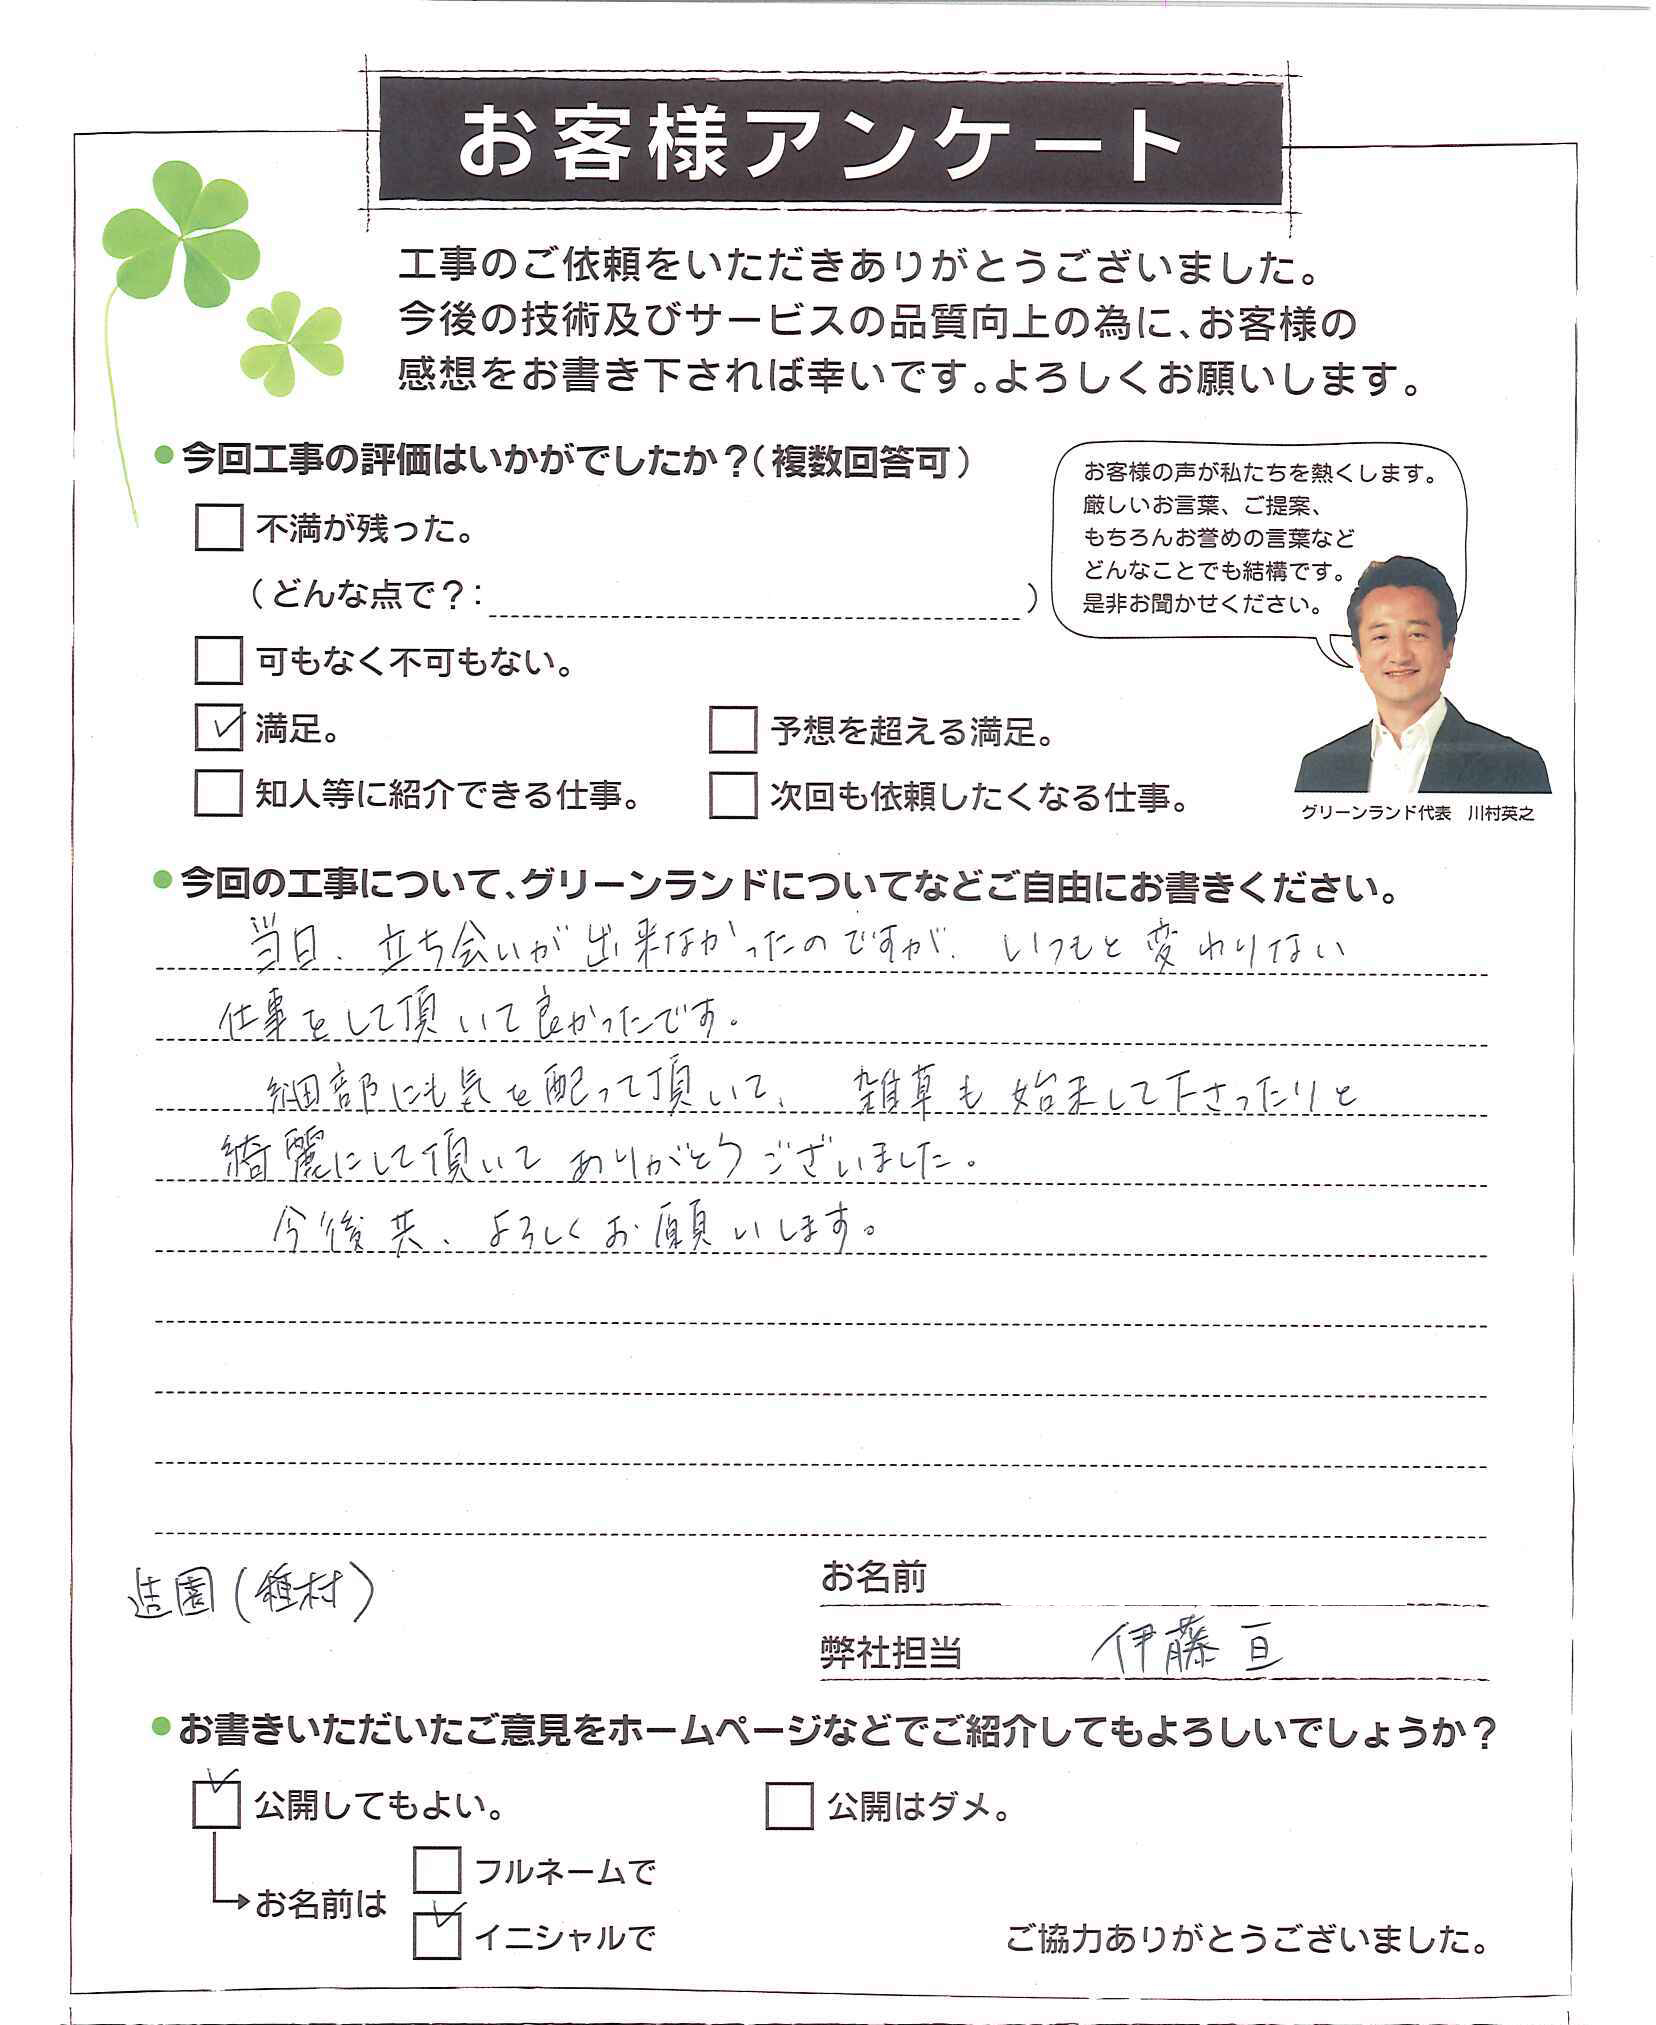 お客様アンケート
工事のご依頼をいただきありがとうございました。
今後の技術及びサービスの品質向上の為に、お客様の
感想をお書き下されば幸いです。よろしくお願いします。
●今回工事の評価はいかがでしたか？（複数回答可）
不満が残った。
（どんな点で？：　）
可もなく不可もない。
満足。
予想を超える満足。
知人等に紹介できる仕事。
次回も依頼したくなる仕事。
お客様の声が私たちを熱くします。
厳しいお言葉、ご提案、
もちろんお誉めの言葉など
どんなことでも結構です。
是非お聞かせください。
グリーンランド代表　川村英之
●今回の工事について、グリーンランドについてなどご自由にお書きください。
当日、立ち会いが出来なかったのですが、いつもと変わりない
仕事をして頂いて良かったです。
細部にも気を配って頂いて、雑草も始末して下さったりと
綺麗にして頂いてありがとうございました。
今後共、よろしくお願いします。
造園（種村）
お名前
弊社担当　伊藤 亘
●お書きいただいたご意見をホームページなどでご紹介してもよろしいでしょうか？
公開してもよい。
公開はダメ。
お名前は
フルネームで
イニシャルで
ご協力ありがとうございました。